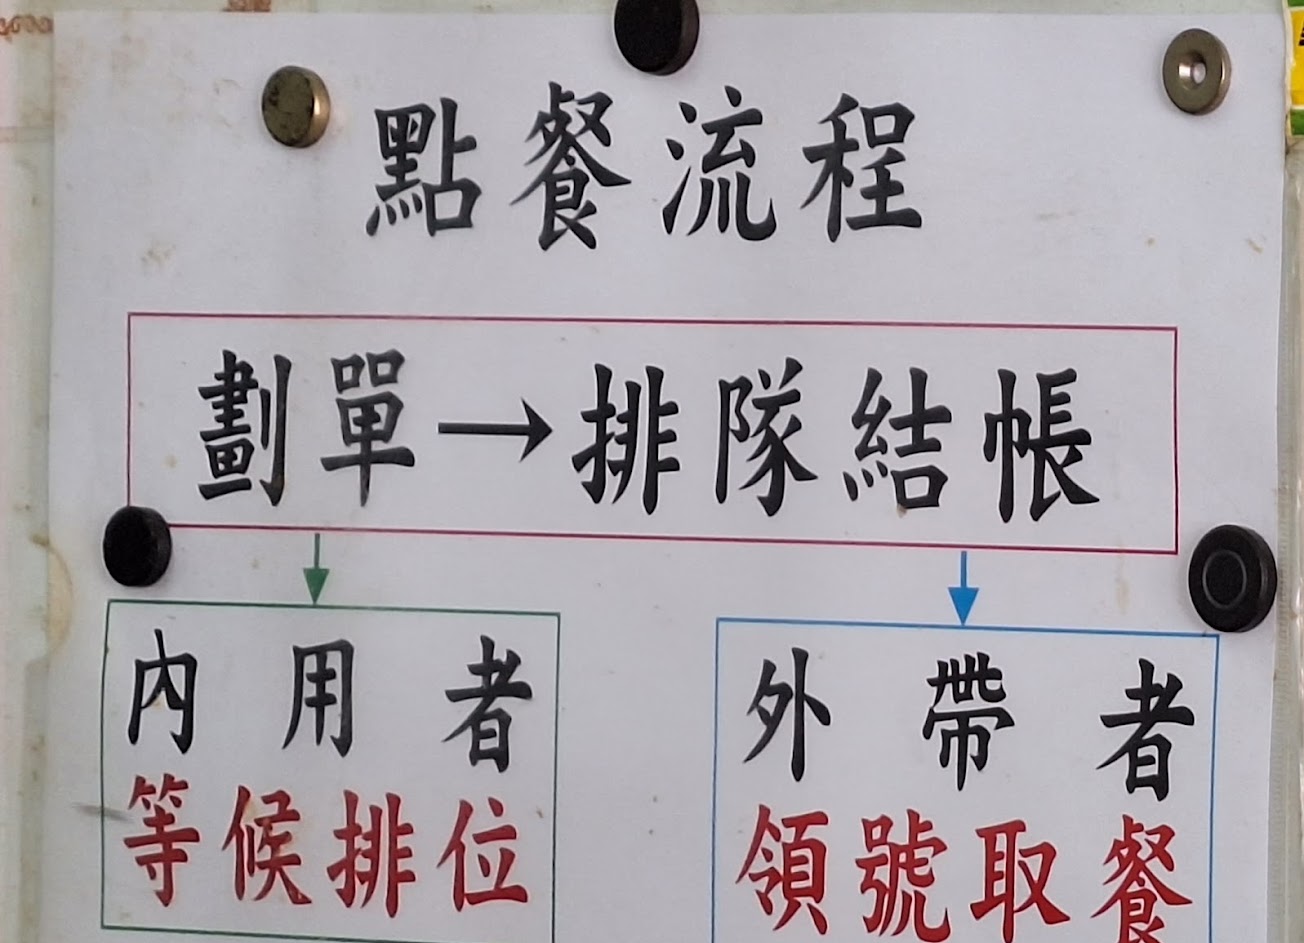 點餐流程
劃單→排隊結帳
內用者
等候排位
外帶者
領號取餐